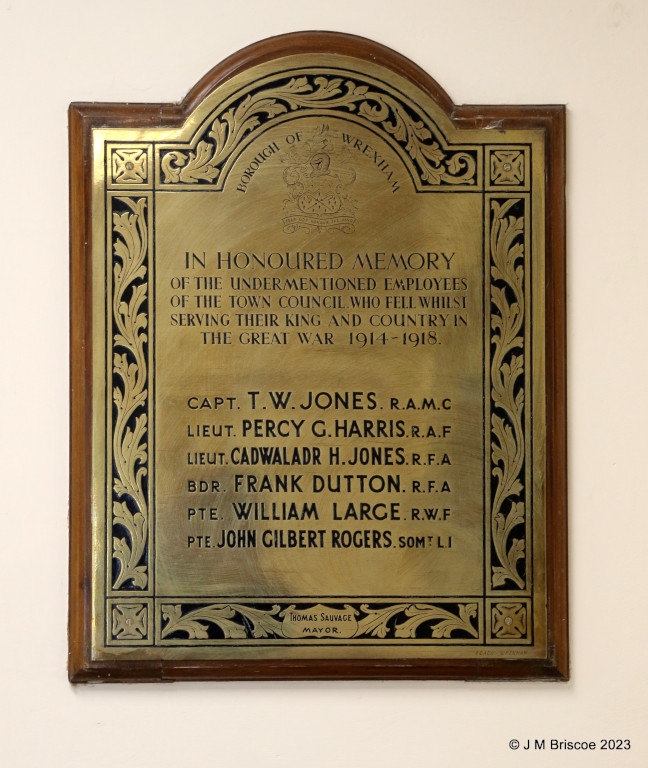 BOROUGH OF WREXHAM
IN HONOURED MEMORY
OF THE UNDERMENTIONED EMPLOYEES
OF THE TOWN COUNCIL WHO FELL WHILST
SERVING THEIR KING AND COUNTRY IN
THE GREAT WAR 1914-1918.
CAPT. T. W. JONES. R.A.M.C
LIEUT. PERCY G. HARRIS. R.A.F
LIEUT. CADWALADR H. JONES. R.F.A
BDR. FRANK DUTTON. R.F.A
PTE. WILLIAM LARGE. R.W.F
PTE. JOHN GILBERT ROGERS. SOMT L.I
THOMAS SAUVAGE
MAYOR.
© J M Briscoe 2023